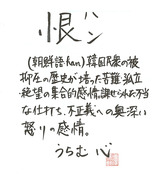 恨 ハン
(朝鮮語han)韓国民衆の被
抑圧の歴史が培った苦難、孤立
・絶望の集合的感情。課せられた不当
な仕打ち、不正義への奥深い
怒りの感情。
うらむ 心